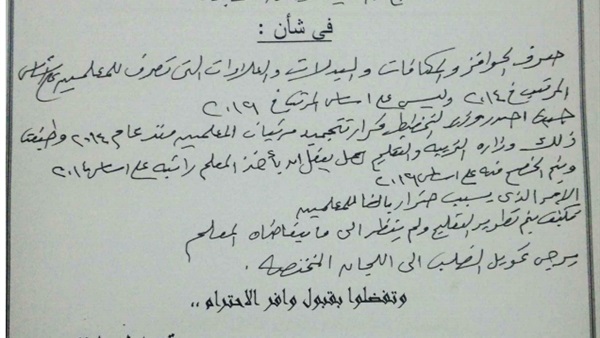 في شأن :
صرف الحوافز والمكافآت والبدلات والعلاوات التى تصرف للمعلمين على أساس
المرتب في ٢٠١٤ وليس على أساس المرتب في ٢٠١٩
حيث أصدر وزير التخطيط قرار تجميد مرتبات المعلمين منذ عام ٢٠١٤ وطبقت
ذلك وزارة التربية والتعليم هل يعقل ان يأخذ المعلم راتبه على اساس ٢٠١٤
ويتم الخصم منه على اساس ٢٠١٩
الامر الذى يسبب ضررا بالغا للمعلمين
فكيف يتم تطوير التعليم ولم ينظر الى ما يتقاضاه المعلم
يرجى تحويل الطلب الى اللجان المختصة .
وتفضلوا بقبول وافر الاحترام ,,